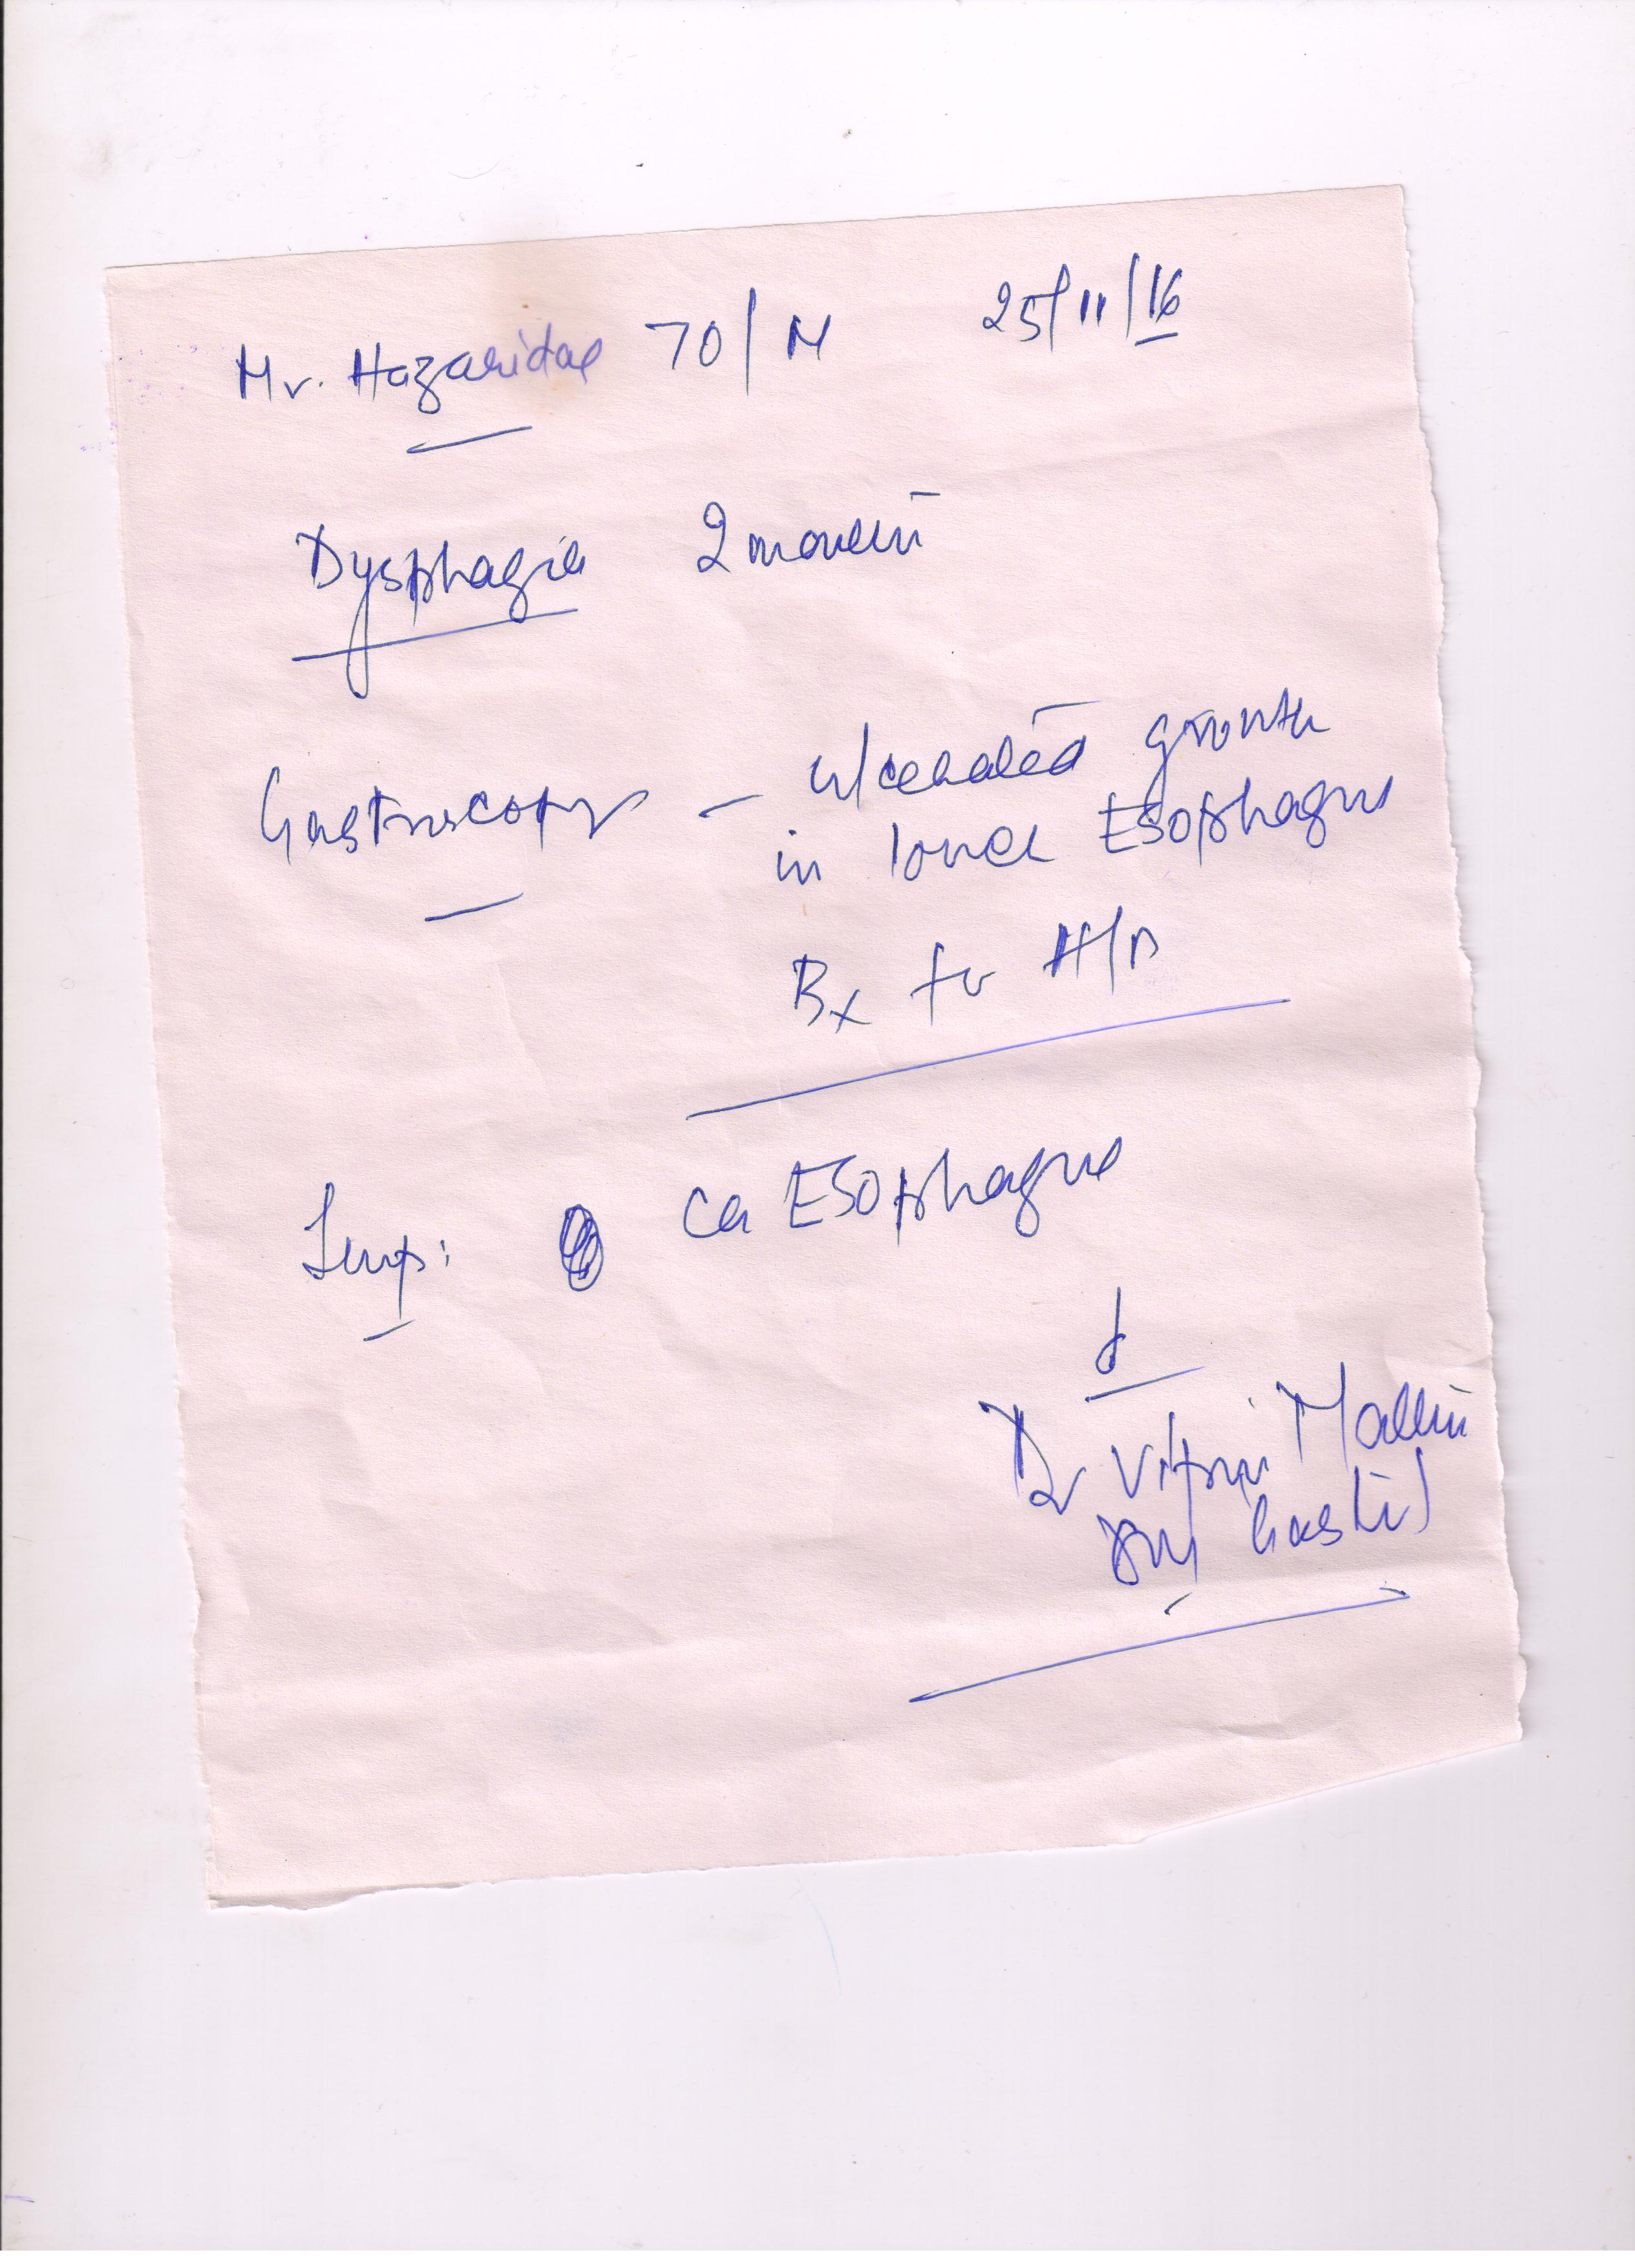 Mr. Hazarilal 70/M 25/11/16
Dysphagia 2 months
Gastroscopy - ulcerated growth
in lower Esophagus
Bx for H/P
Imp: Ca Esophagus
Dr Vipin